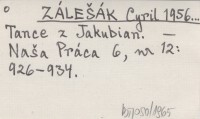 ZÁLEŠÁK Cyril 1956...
Tance z Jakubian. —
Naša Práca 6, nr 12:
926-934.
/1965